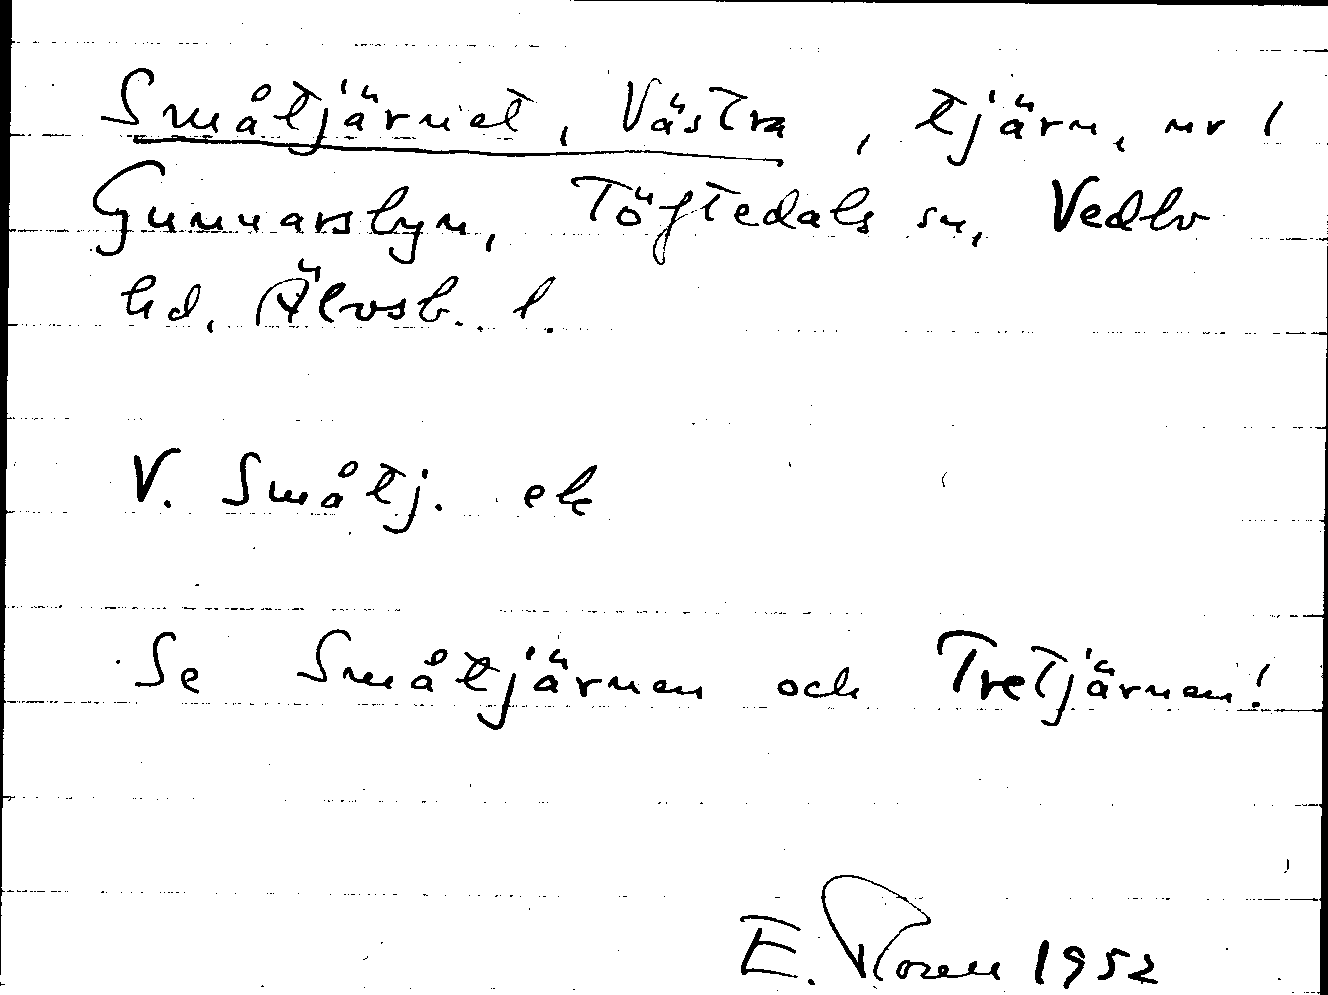 Småtjärnet, Västra, tjärn, nr 1
Gunnarsbyn, Töftedals sn, Vedbo
hd, Älvsb. l.
V. Småtj. ek
Se Småtjärnen och Tretjärnen!
E. Rosen 1952